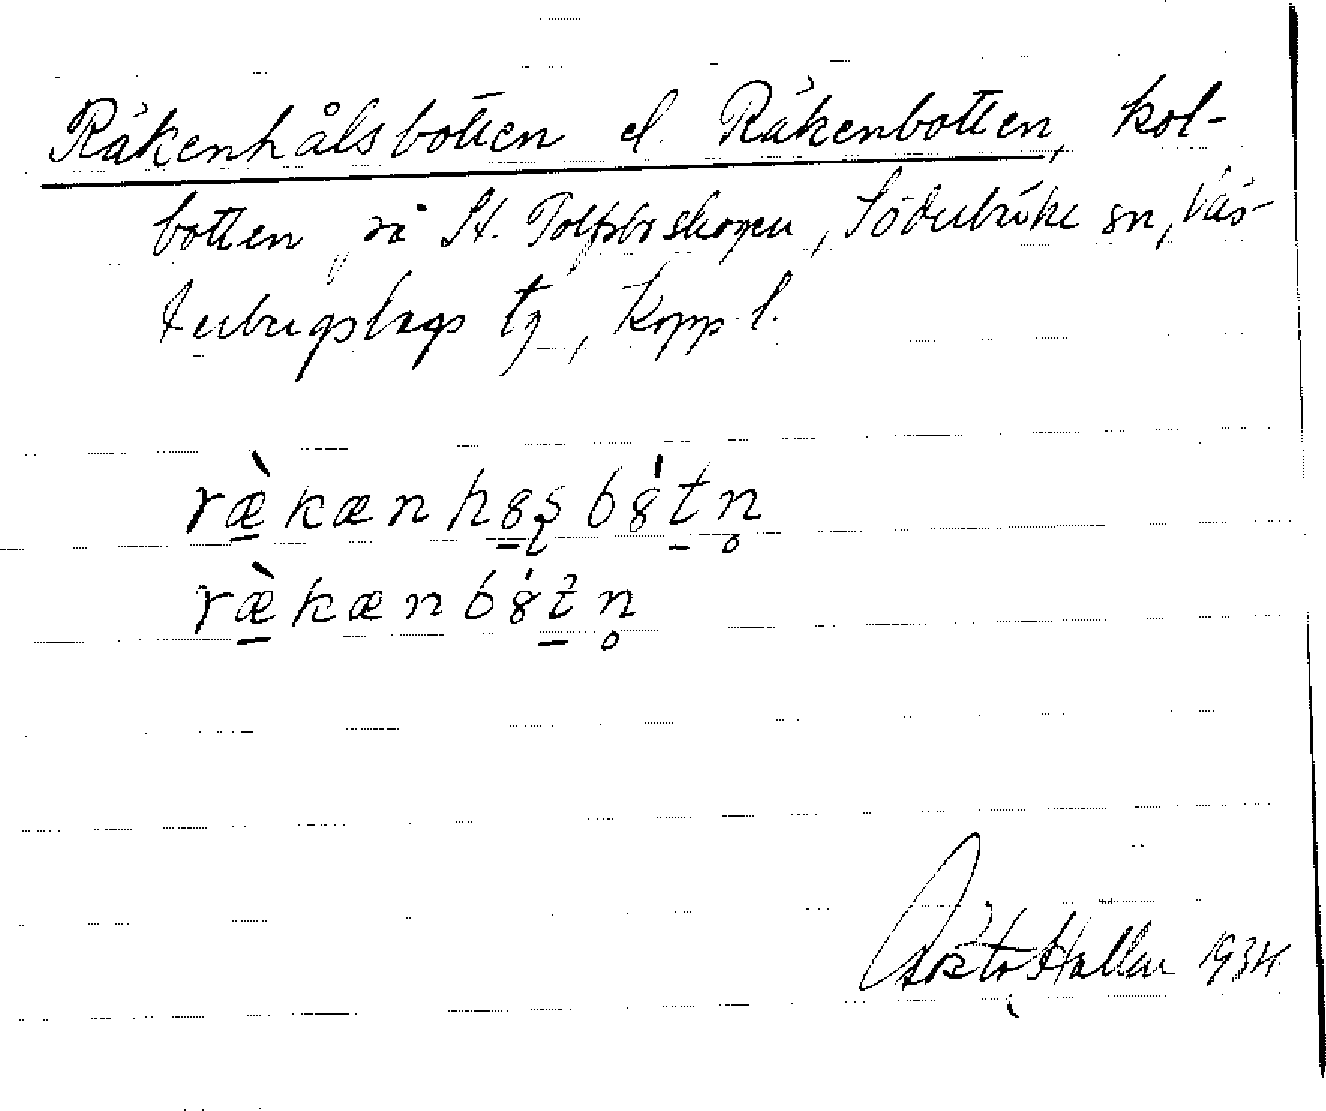 Räkenhålsbotten el. Räkenbotten, kol-
botten på St. Tolfsboskogen, Söderbärke sn, Väs-
terbergslags tg, Kopp. l.
ræ̠̀kænhȣ̠ş bȣ́t̠n̥
ræ̠̀kænbȣ́t̠n̥
Gösta Hallin 1934